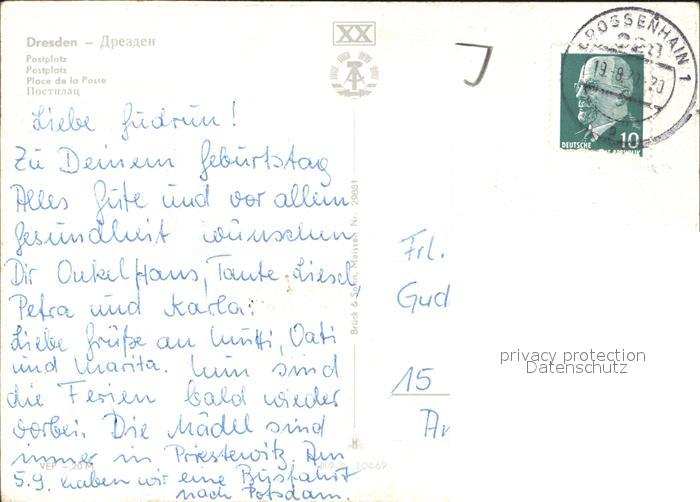 Dresden – Дрезден
Postplatz
Postplatz
Place de la Poste
Постплац
XX
GROSSENHAIN 1
DEUTSCHE
10
Liebe Gudrun!
Zu Deinem Geburtstag
Alles Gute und vor allem
Gesundheit wünschen
Dir Onkel Hans, Tante Liesel
Petra und Karla.
Liebe Grüße an Mutti, Vati
und Marita. Nun sind
die Ferien bald wieder
vorbei. Die Mädel sind
immer in Priestewitz. Am
5.9. haben wir eine Busfahrt
nach Potsdam.
Brück & Sohn, Meissen Nr. 29881
Frl.
Gud
15
privacy protection
Datenschutz